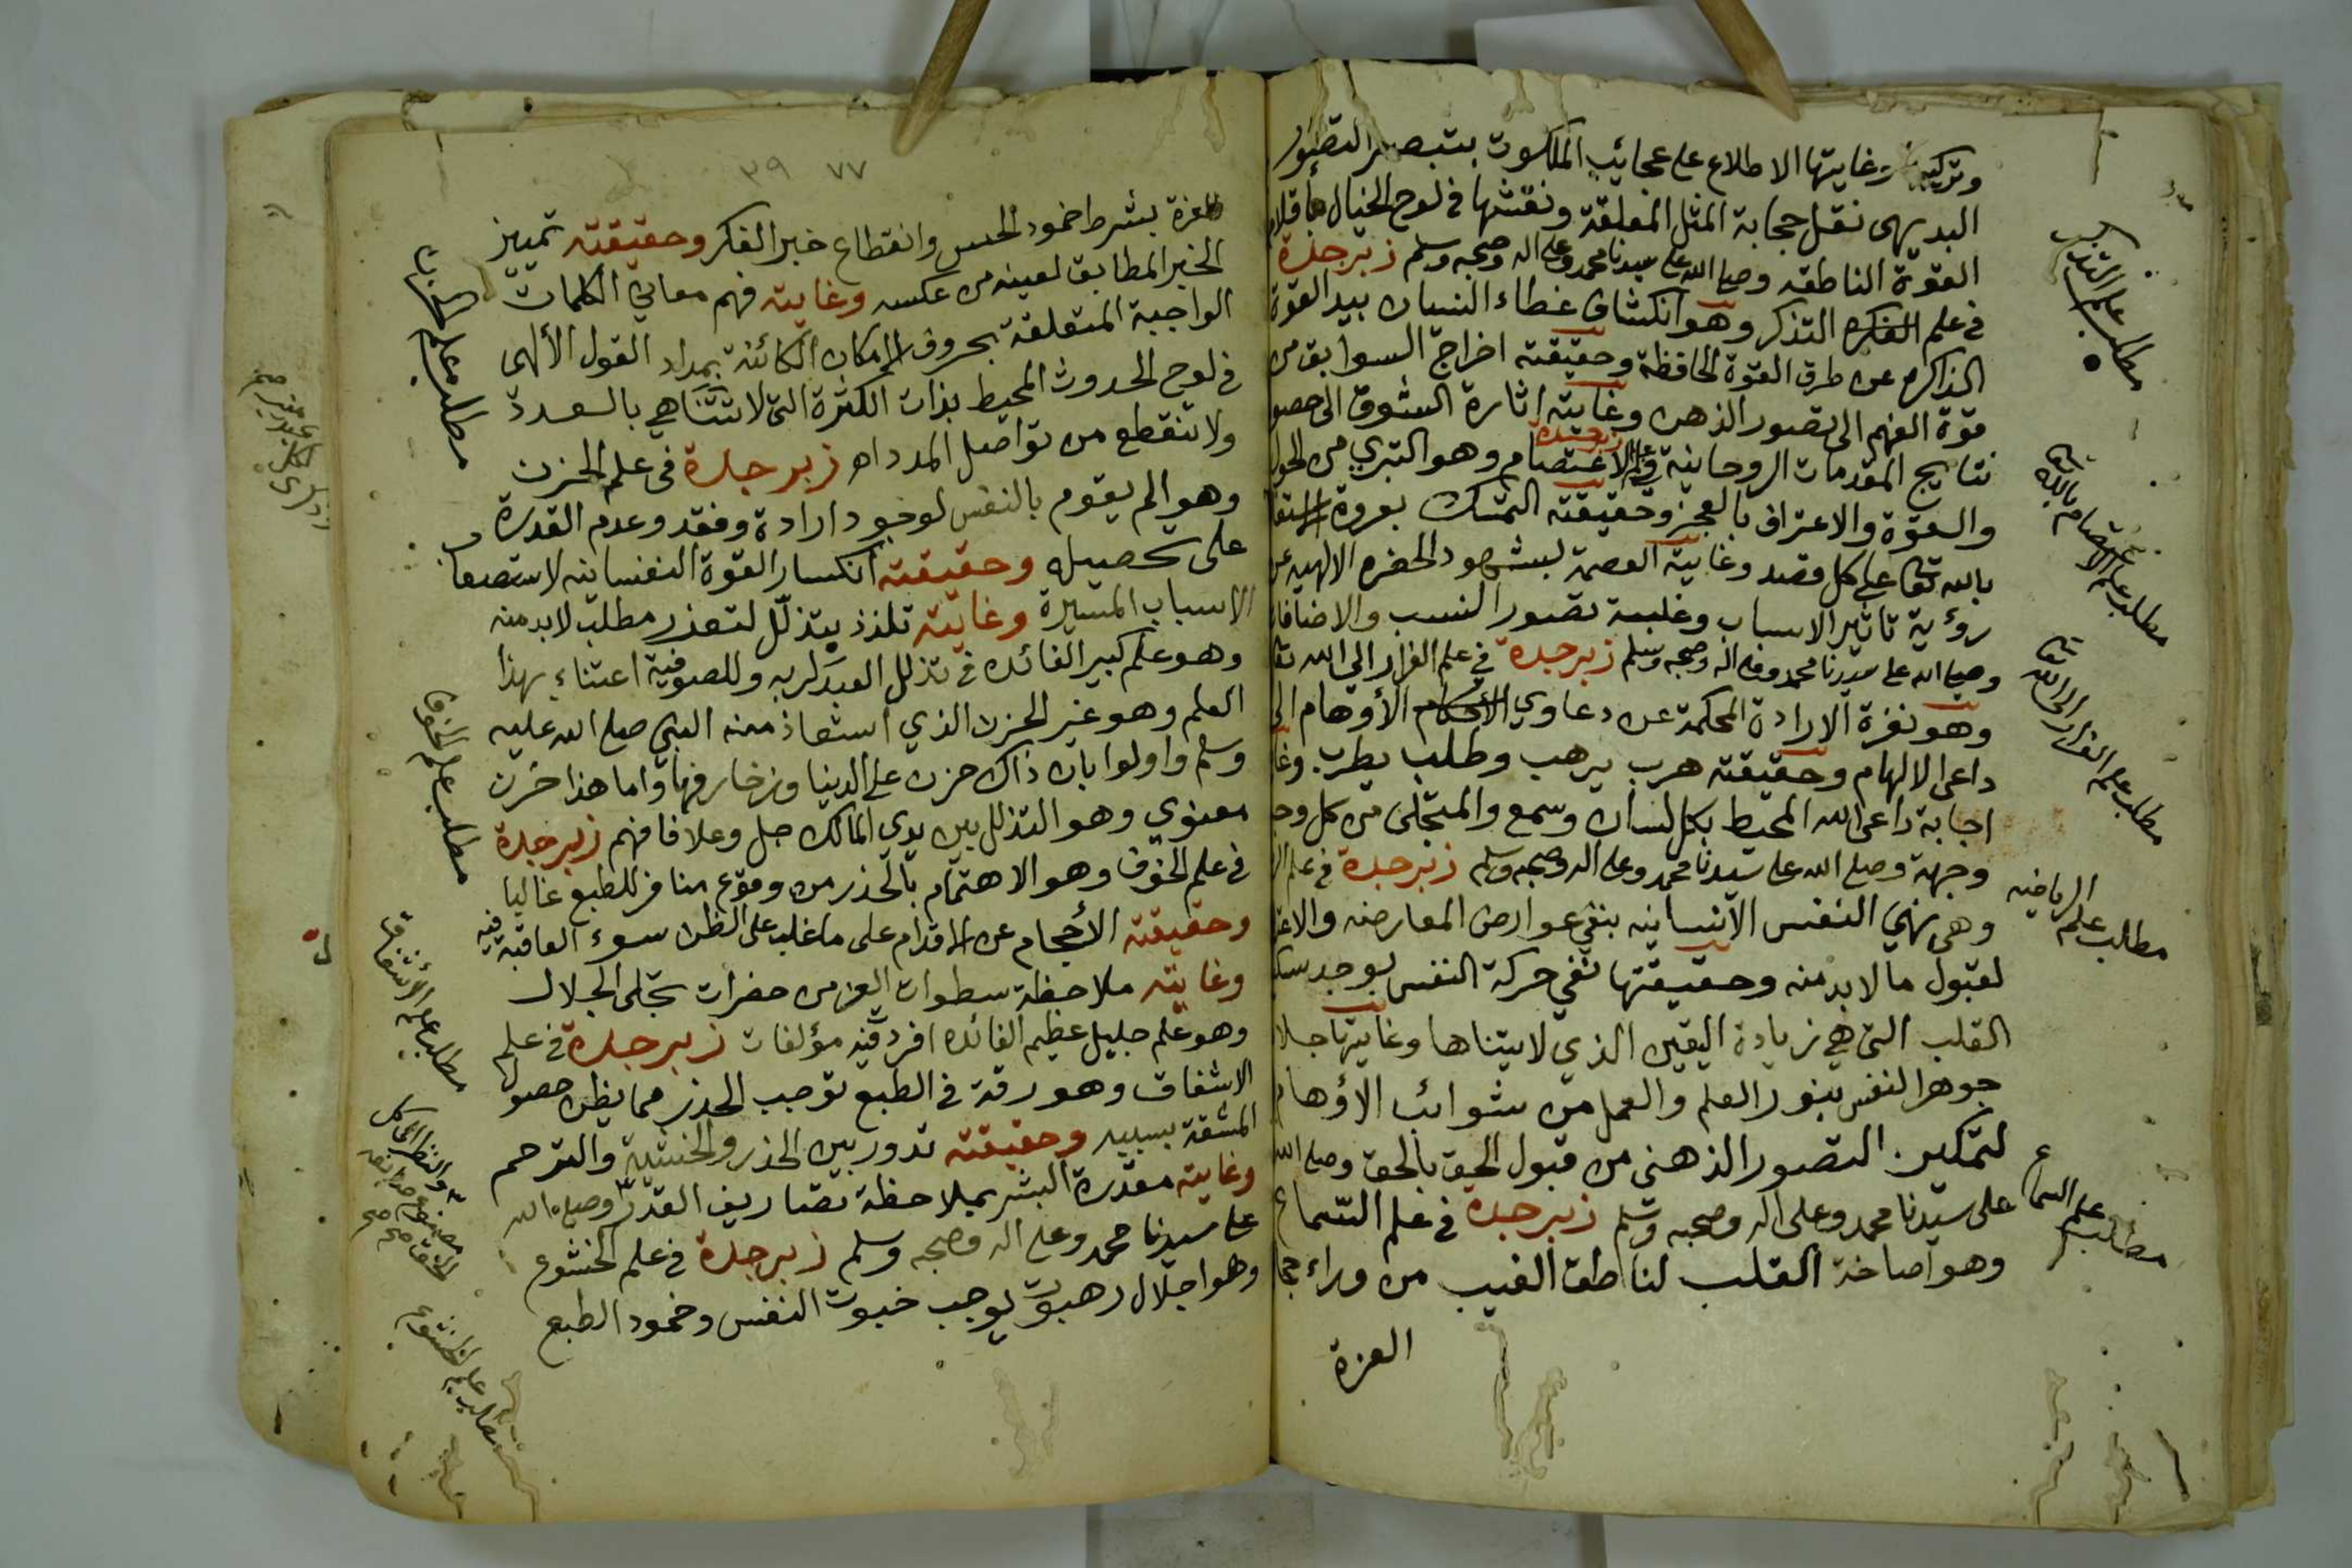 وتركيبه وغايتها الاطلاع على عجائب الملكوت بتبصير التصور
البديهى نقل حجابة المثل المعلقة ونقشها في لوح الخيال بأقلام
القوة الناطقه وصلى الله على سيدنا محمد وعلى اله وصحبه وسلم زبرجدة
في علم التذكر وهو انكشاف غطاء النسيان بيد القوة
الذاكره عن طرق القوة الحافظة وحقيقته اخراج السوابق من
قوة الفهم الى تصور الذهن وغايته اثارة الشوق الى حصو
نتايج المقدمات الروحانية زبرجدة في علم الاعتصام وهو التبري من الحول
والقوة والاعتراف بالعجز وحقيقته التمسك بعروة
بالله تعا على كل قصد وغاية العصمة لشهود الحضره الالهيه عن
رؤية تاثير الاسباب وغلبة تصور النسب والاضافا
وصلى الله على سيدنا محمد وعلى اله وصحبه وسلم زبرجدة في علم الفرار الى الله تعا
وهو نفرة الارادة المحكمة عن دعاوي الأحكام الأوهام الى
داعى الالهام وحقيقته هرب يرهب وطلب يطرب وغا
اجابة داعى الله المحيط بكل لسان وسمع والمتجلى من كل وجه
وجهة وصلى الله على سيدنا محمد وعلى اله وصحبه وسلم زبرجدة في علم الر
وهى نهي النفس الانسانيه بنفي عوارض المعارضه والاعتر
لقبول ما لا بد منه وحقيقتها نفي حركة النفس بوجد سك
القلب التى هي زيادة اليقين الذي لا يتناها وغايتها جلا
جوهر النفس بنور العلم والعمل من شوائب الأوهام
لتمكين التصور الذهنى من قبول الحق بالحق وصلى الله
على سيدنا محمد وعلى اله وصحبه وسلم زبرجدة في علم السماع
وهو اصاخة القلب لناطق الغيب من وراء حجا
العزة
مطلب علم التذكر
مطلب علم الاعتصام بالله تعا
مطلب علم الفرار الى الله تعا
مطلب علم الرياضيه
مطلب علم السماع
٧٧ ٣٩
العزة بشرط خمود الحس وانقطاع خبر الفكر وحقيقته تمييز
الخبر المطابق لعينه من عكسه وغايته فهم معاني الكلمات
الواجبة المتعلقة بحروف الامكان الكائنة بمداد القول الألهى
في لوح الحدوث المحيط بذات الكثرة التى لا تتناهي بالعدد
ولا تنقطع من تواصل المدد اه زبرجدة فى علم الحزن
وهو الم يقوم بالنفس لوجود ارادة وفقد وعدم القدرة
على تحصيله وحقيقته انكسار القوة النفسانيه لاستصعا
الاسباب المتيسرة وغايته تلذذ بتذلل لتعذر مطلب لابد منه
وهو علم كبير الفائده في تذلل العبد لربه وللصوفية اعتناء بهذا
العلم وهو غير الحزن الذي استعاذ منه النبي صلى الله عليه
وسلم واولوا بان ذاك حزن على الدنيا وزخارفها واما هذا حزن
معنوي وهو التذلل بين يدي المالك جل وعلا فافهم زبرجدة
في علم الخوف وهو الاهتمام بالحذر من وقوع منافر للطبع غالبا
وحقيقته الأحجام عن الاقدام على ما غلب على الظن سوء العاقبة فيه
وغايته ملاحظة سطوات العز من حضرات تجلى الجلال
وهو علم جليل عظيم الفائده افرد فيه مؤلفات زبرجدة في علم
الاشفاق وهو رقة في الطبع توجب الحذر مما يظن حصولها
المشقة بسببه وحقيقته تدور بين الحذر والخشية والترحم
وغايته معذرة البشر بملاحظة تصاريف القدر وصلى الله
على سيدنا محمد وعلى اله وصحبه وسلم زبرجدة في علم الخشوع
وهو اجلال رهبوت يوجب خبوت النفس وخمود الطبع
مطلب علم الحزن
مطلب علم الخوف
مطلب علم الأشفاق
مطلب علم الخشوع